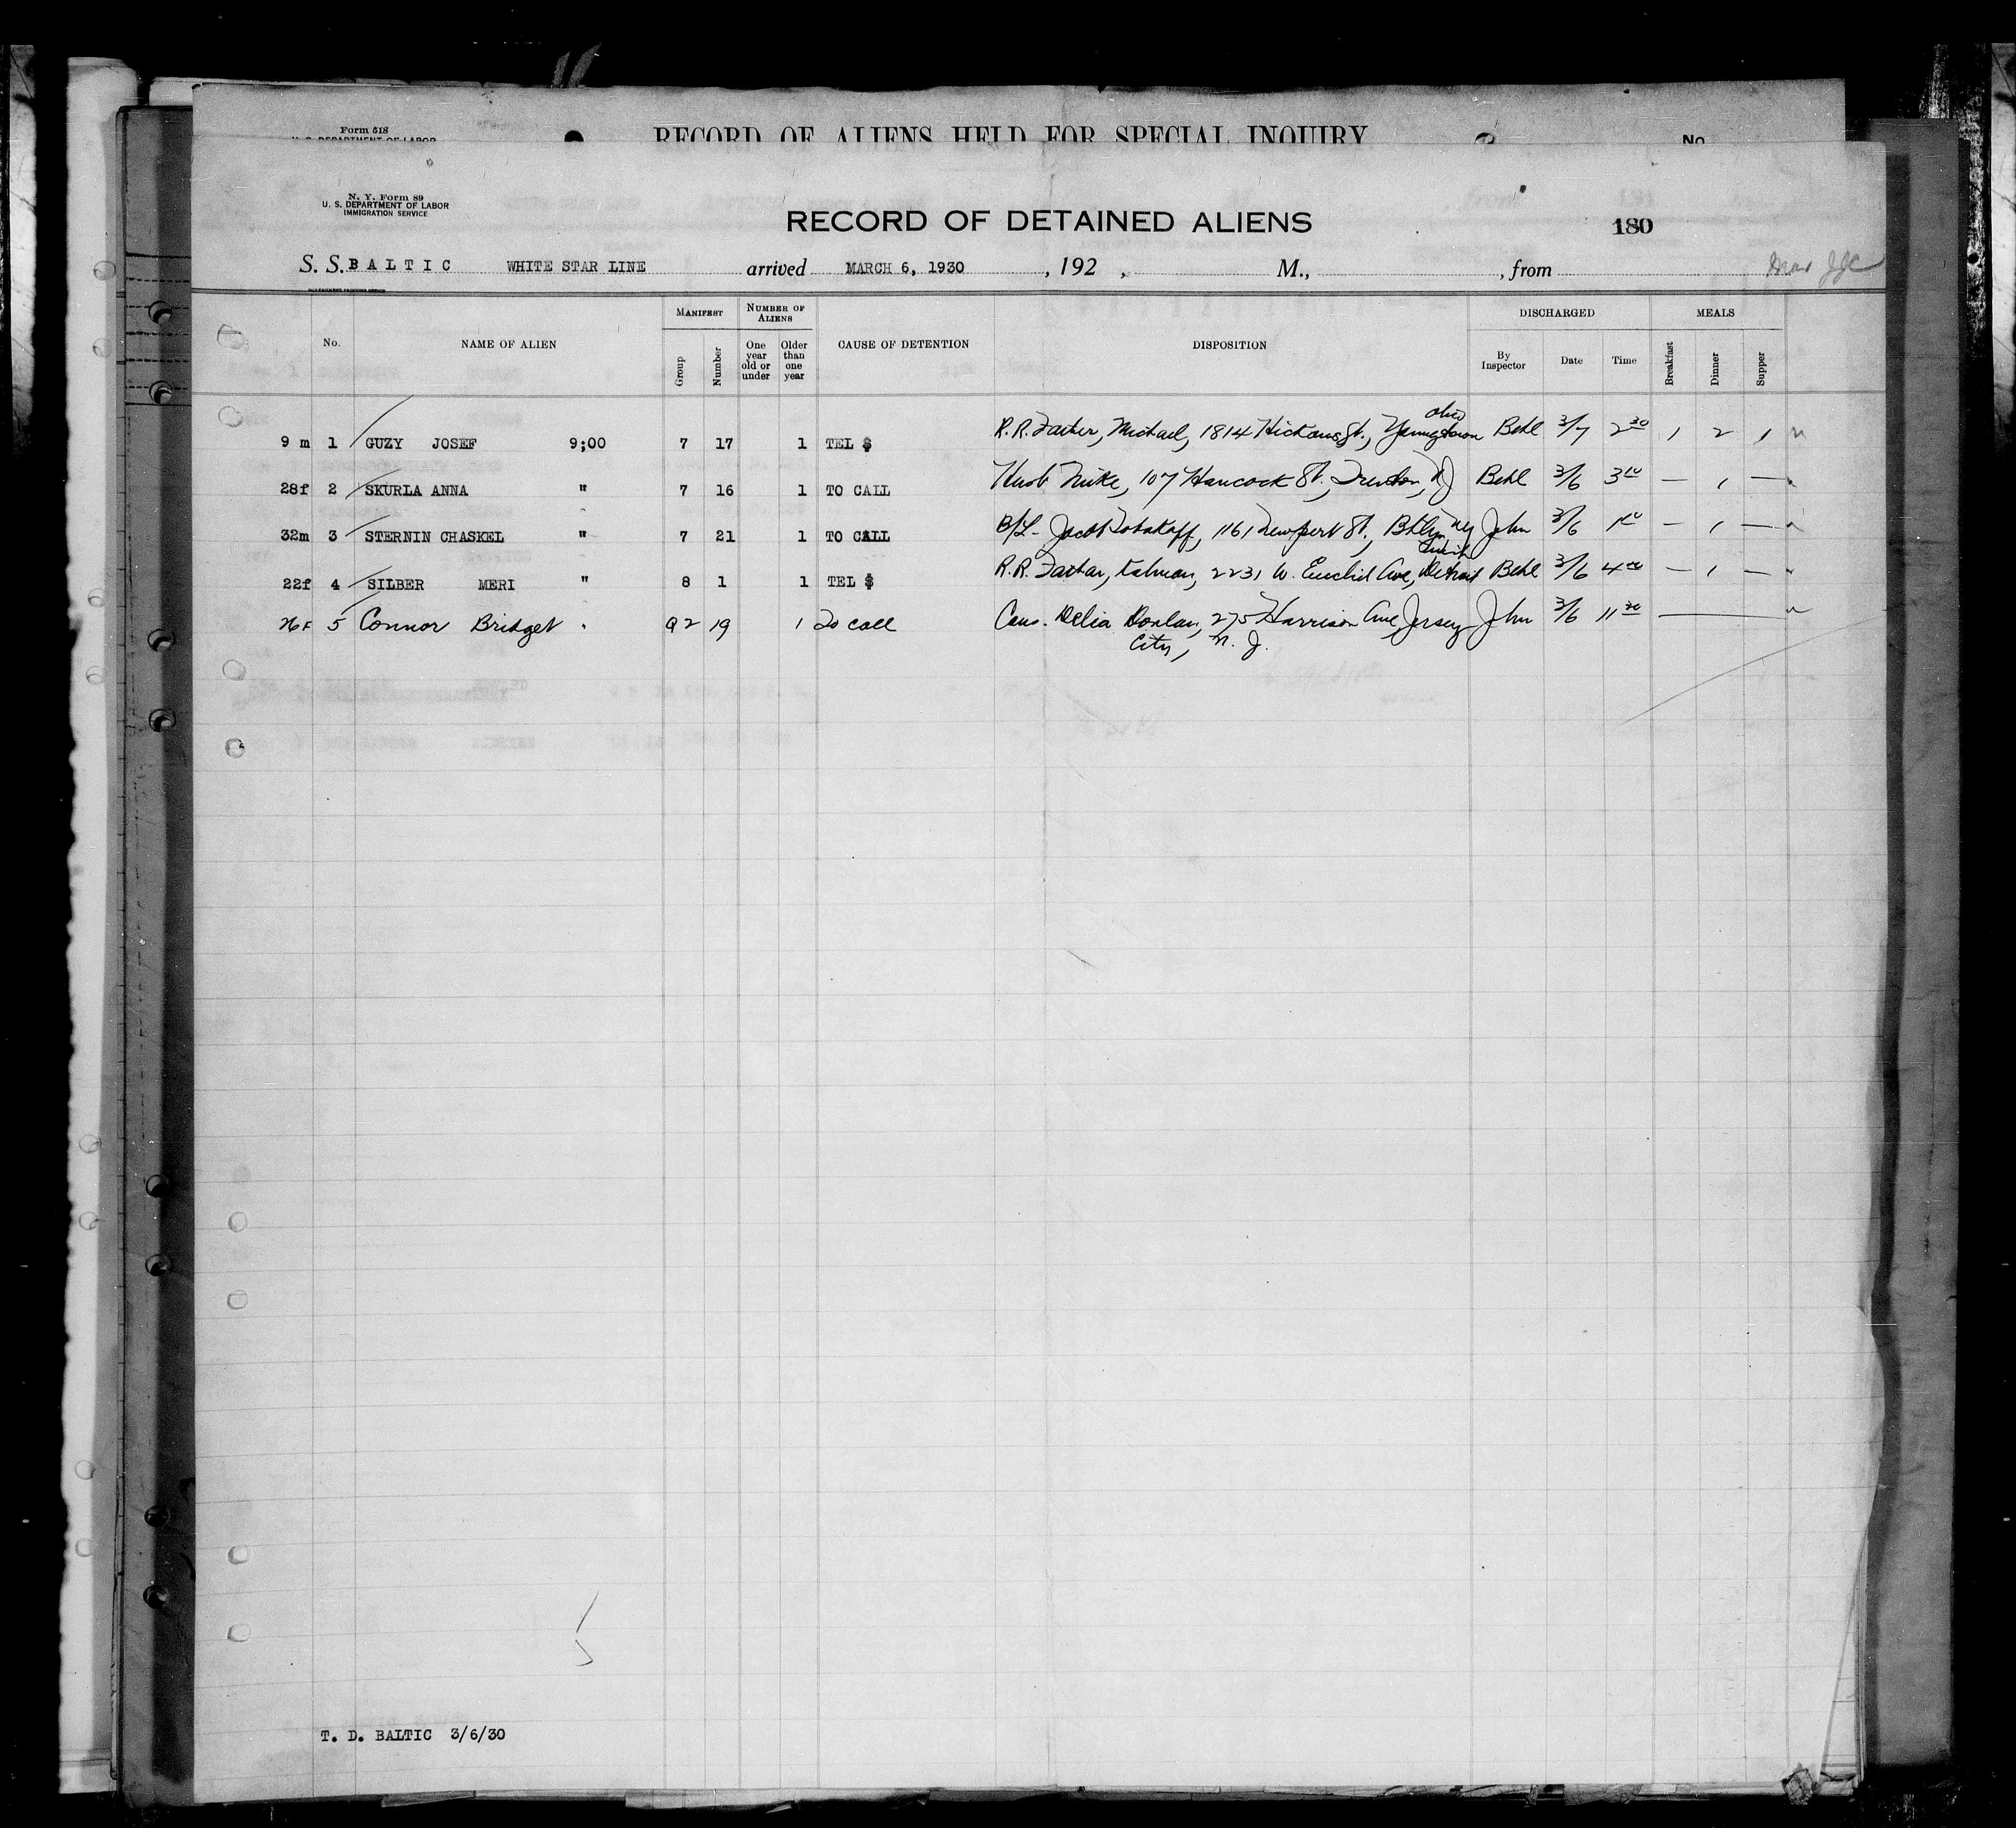 Form 518
U. S. DEPARTMENT OF LABOR
RECORD OF ALIENS HELD FOR SPECIAL INQUIRY
No.
N. Y. Form 89
U. S. DEPARTMENT OF LABOR
IMMIGRATION SERVICE
RECORD OF DETAINED ALIENS
180
S. S. BALTIC WHITE STAR LINE arrived MARCH 6, 1930 , 192 , M., , from
MANIFEST NUMBER OF ALIENS DISCHARGED MEALS
No. NAME OF ALIEN Group Number One year old or under Older than one year CAUSE OF DETENTION DISPOSITION By Inspector Date Time Breakfast Dinner Supper
9 m 1 GUZY JOSEF 9;00 7 17 1 TEL $ R.R. Father, Michael, 1814 St., Youngstown Ohio Behl 3/7 2 30 1 2 1
28f 2 SKURLA ANNA " 7 16 1 TO CALL Husb Mike, 107 Hancock St., Trenton, NJ Behl 3/6 3 10 — 1 —
32m 3 STERNIN CHASKEL " 7 21 1 TO CALL B/L- Jacob 1161 Newport St., Bklyn NY John 3/6 — 1 —
22f 4 SILBER MERI " 8 1 1 TEL $ R.R. Father, Kalman, 2231 W. Euclid Ave, Detroit Mich Behl 3/6 4 00 — 1 —
26f 5 Connor Bridget " 92 19 1 To call Cous. Delia Donlan, 275 Harrison Ave, Jersey John 3/6 11 30 —
City, N. J.
5
T. D. BALTIC 3/6/30